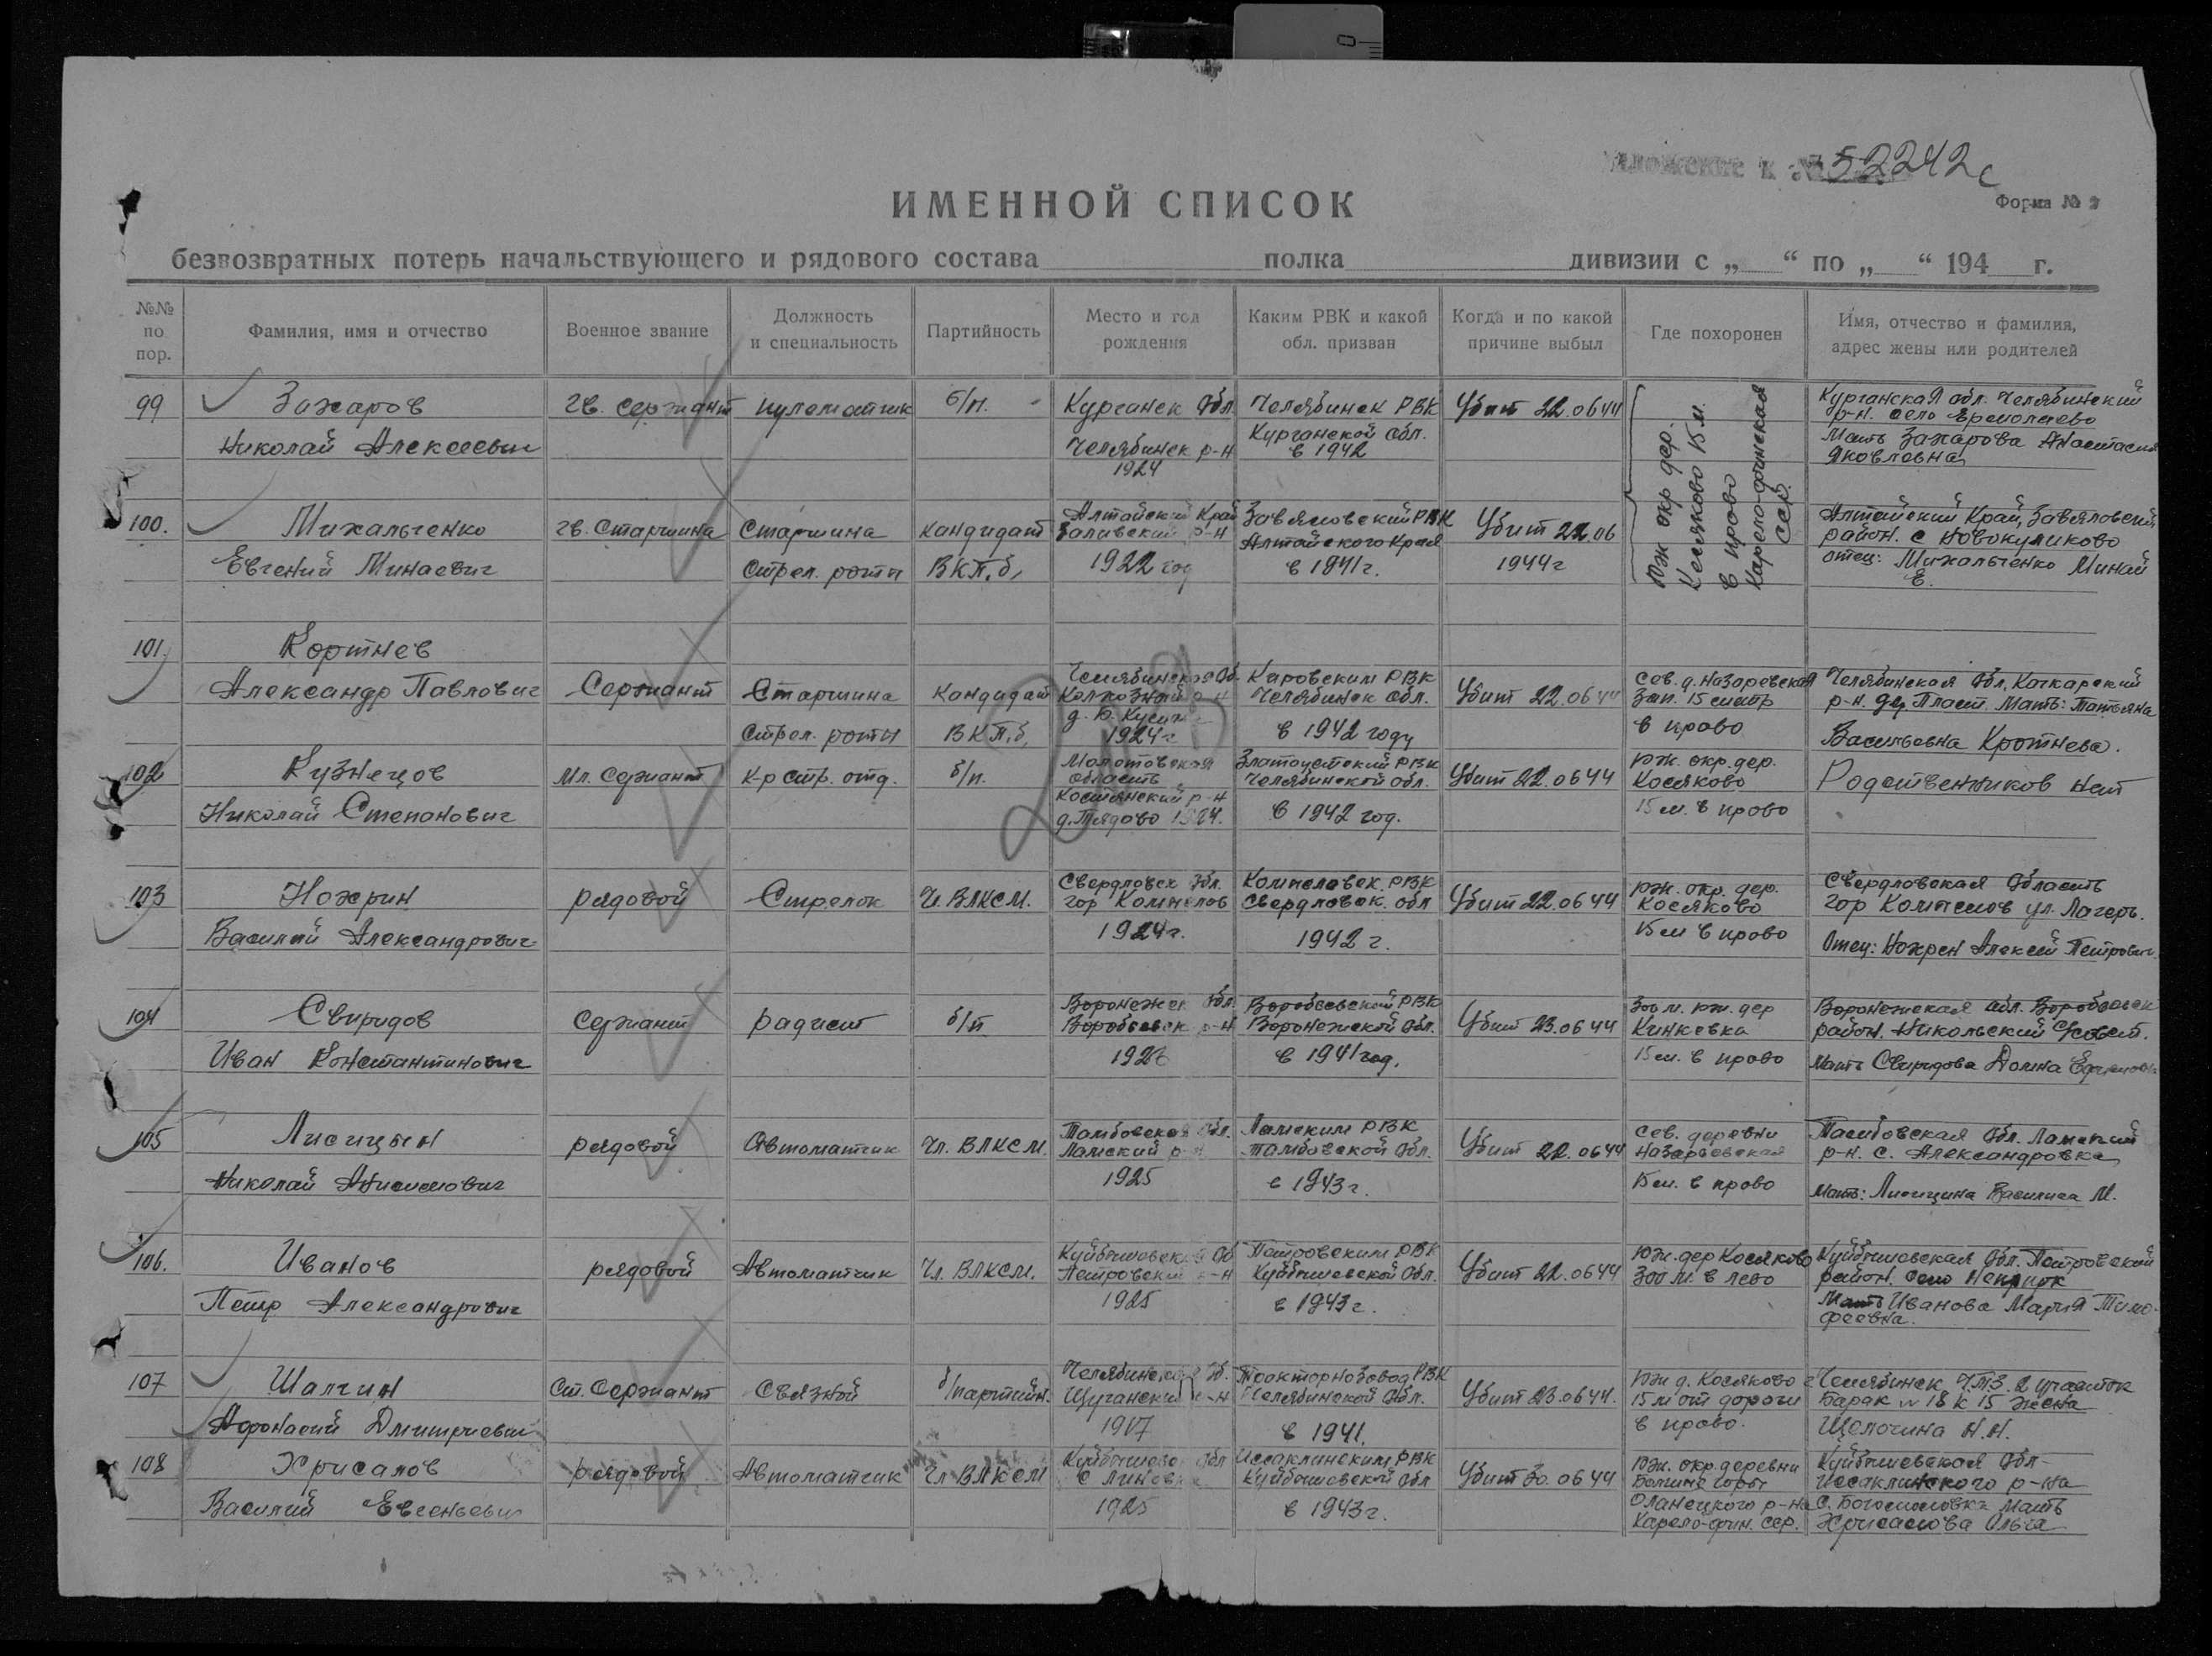 Приложение к № 52242с
ИМЕННОЙ СПИСОК
Форма № 2
безвозвратных потерь начальствующего и рядового состава полка дивизии с „ “ по „ “ 194 г.
№№ по пор.
Фамилия, имя и отчество
Военное звание
Должность и специальность
Партийность
Место и год рождения
Каким РВК и какой обл. призван
Когда и по какой причине выбыл
Где похоронен
Имя, отчество и фамилия, адрес жены или родителей
99 Захаров гв. сержант пулеметчик б/п. Курганск Обл. Челябинск РВК Убит 22.06 44 Курганская обл. Челябинский
р-н. село Ермолаево
Николай Алексеевич Челябинск р-н Курганской обл. Мать Захарова Анастасия
1924 в 1942 Яковлевна
Юж окр дер.
Косяково 15 м.
в право
Карело-финская
ССР.
100. Михальченко гв. Старшина Старшина кандидат Алтайский Край Завяловский РВК Убит 22.06 Алтайский Край, Завяловский
р-н Алтайского Края район. с Новокуликово
Евгений Минаевич Стрел. роты ВКП.б, 1922 год в 1941г. 1944г отец: Михальченко Минай
Е.
101. Кортнев
Александр Павлович Сержант Старшина Кандидат Челябинская Об. Кировским РВК Убит 22.06 44 Сев. д. Назаревская Челябинская Обл, Кочкарский
р-н Челябинск обл. Зап. 15 метр р-н. дер. Пласт. Мать: Татьяна
Стрел. роты ВКП.б, 1924г в 1942 году в право Васильевна Кротнева.
102 Кузнецов Мл. Сержант К-р стр. отд. б/п. Молотовская Златоустский РВК Убит 22.06 44 Юж. окр. дер. Родственников нет
область Челябинской обл. Косяково
Николай Степанович р-н в 1942 год. 15 м. в право
103 Ножрин рядовой Стрелок Чл ВЛКСМ. Свердловск Обл. Камышловск. РВК Убит 22.06 44 Юж. окр. дер. Свердловская Область
гор Свердловск. обл Косяково гор ул. Лагерь.
Василий Александрович 1924г. 1942 г. 15 м в право Отец: Ножрен Алексей Петрович.
104 Свиридов Сержант радист б/п Воронежск Обл. Воробьевский РВК Убит 23.06 44 300 м. юж. дер Воронежская обл. Воробьевск
Воробьевск р-н Воронежской Обл. Кинкевка район. Никольский Совет.
Иван Константинович в 1941 год. 15 м. в право Мать Свиридова
105 Лисицын рядовой Автоматчик Чл. ВЛКСМ. Тамбовская Обл. Ламским РВК Убит 22.06 44 Сев. деревни Тамбовская Обл. Ламский
Ламский р-н Тамбовской Обл. Назарьевская р-н. с. Александровка
Николай Анисимович 1925 в 1943г. 15 м. в право Мать: Лисицина Василиса М.
106. Иванов рядовой Автоматчик Чл. ВЛКСМ. Куйбышевская Об Петровским РВК Убит 22.06 44 Юж. дер Косяково Куйбышевская Обл. Петровский
Петровский р-н Куйбышевской Обл. 300 м. в лево район. село
Петр Александрович 1925 в 1943г. Мать Иванова Мария Тимо-
феевна.
107 Шалгин Ст. Сержант Связной б/партийн. Челябинская Об. Тракторнозавод РВК Убит 23.06 44. Юж д. Косяково Челябинск Ч.Т.З. 2 участок
р-н Челябинской Обл. 15 м от дороги Барак № 18 к 15 жена
Афонасий Дмитриевич 1917 в 1941. в право. Н.Н.
108 Хрисанов рядовой Автоматчик Чл ВЛКСМ Куйбышевс Обл Иссаклинским РВК Убит 30.06 44 Юж. окр. деревни Куйбышевская Обл-
Куйбышевской Обл горы Иссаклинского р-на
Василий Евсеньевич 1925 в 1943г. Оланецкого р-на с. Богомоловка Мать
Карело-фин. сср. Хрисанова Ольга